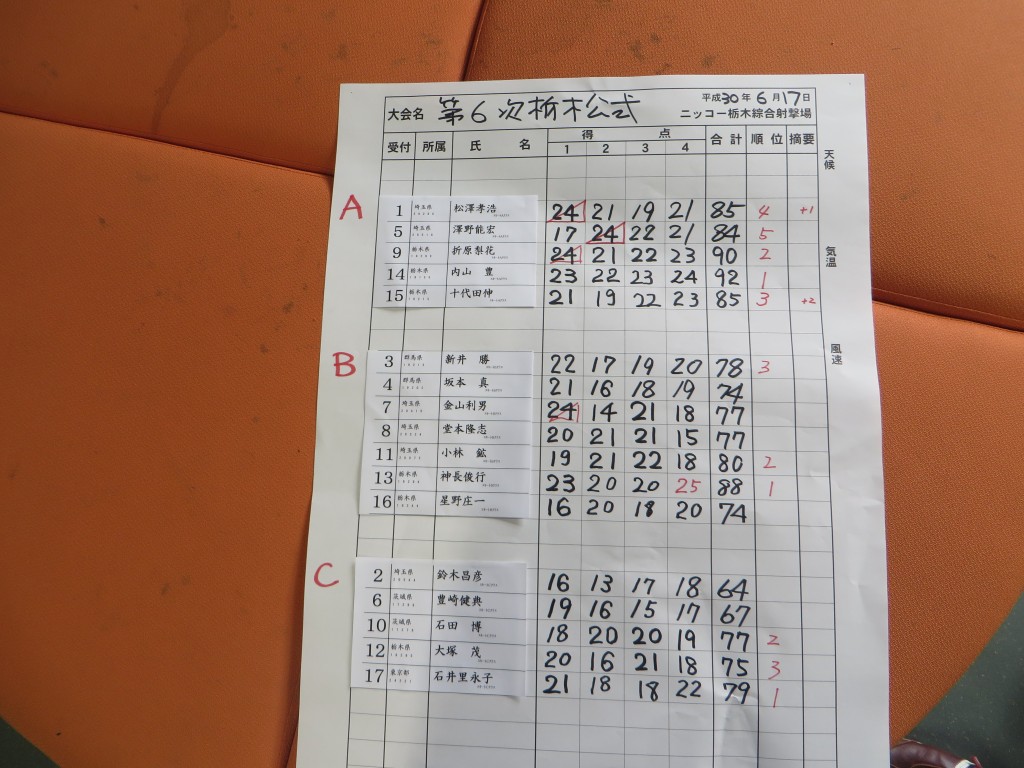 大会名 第6次栃木公式 平成30年6月17日
ニッコー栃木綜合射撃場
受付 所属 氏 名 得 点 合計 順位 摘要
1 2 3 4
天候
A
1 埼玉県 松澤孝浩 24 21 19 21 85 4 +1
5 埼玉県 澤野能宏 17 24 22 21 84 5
9 栃木県 折原梨花 24 21 22 23 90 2
14 栃木県 内山 豊 23 22 23 24 92 1
15 栃木県 十代田伸 21 19 22 23 85 3 +2
気温
B
3 群馬県 新井 勝 22 17 19 20 78 3
4 群馬県 坂本 真 21 16 18 19 74
7 埼玉県 金山利男 24 14 21 18 77
8 埼玉県 堂本隆志 20 21 21 15 77
11 埼玉県 小林 鉱 19 21 22 18 80 2
13 栃木県 神長俊行 23 20 20 25 88 1
16 栃木県 星野庄一 16 20 18 20 74
風速
C
2 埼玉県 鈴木昌彦 16 13 17 18 64
6 茨城県 豊崎健典 19 16 15 17 67
10 茨城県 石田 博 18 20 20 19 77 2
12 栃木県 大塚 茂 20 16 21 18 75 3
17 東京都 石井里永子 21 18 18 22 79 1